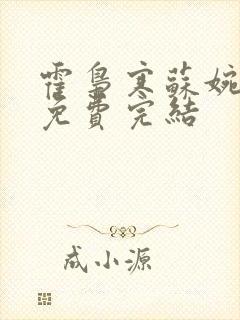 霍梟寒蘇婉
免費完結
成小源